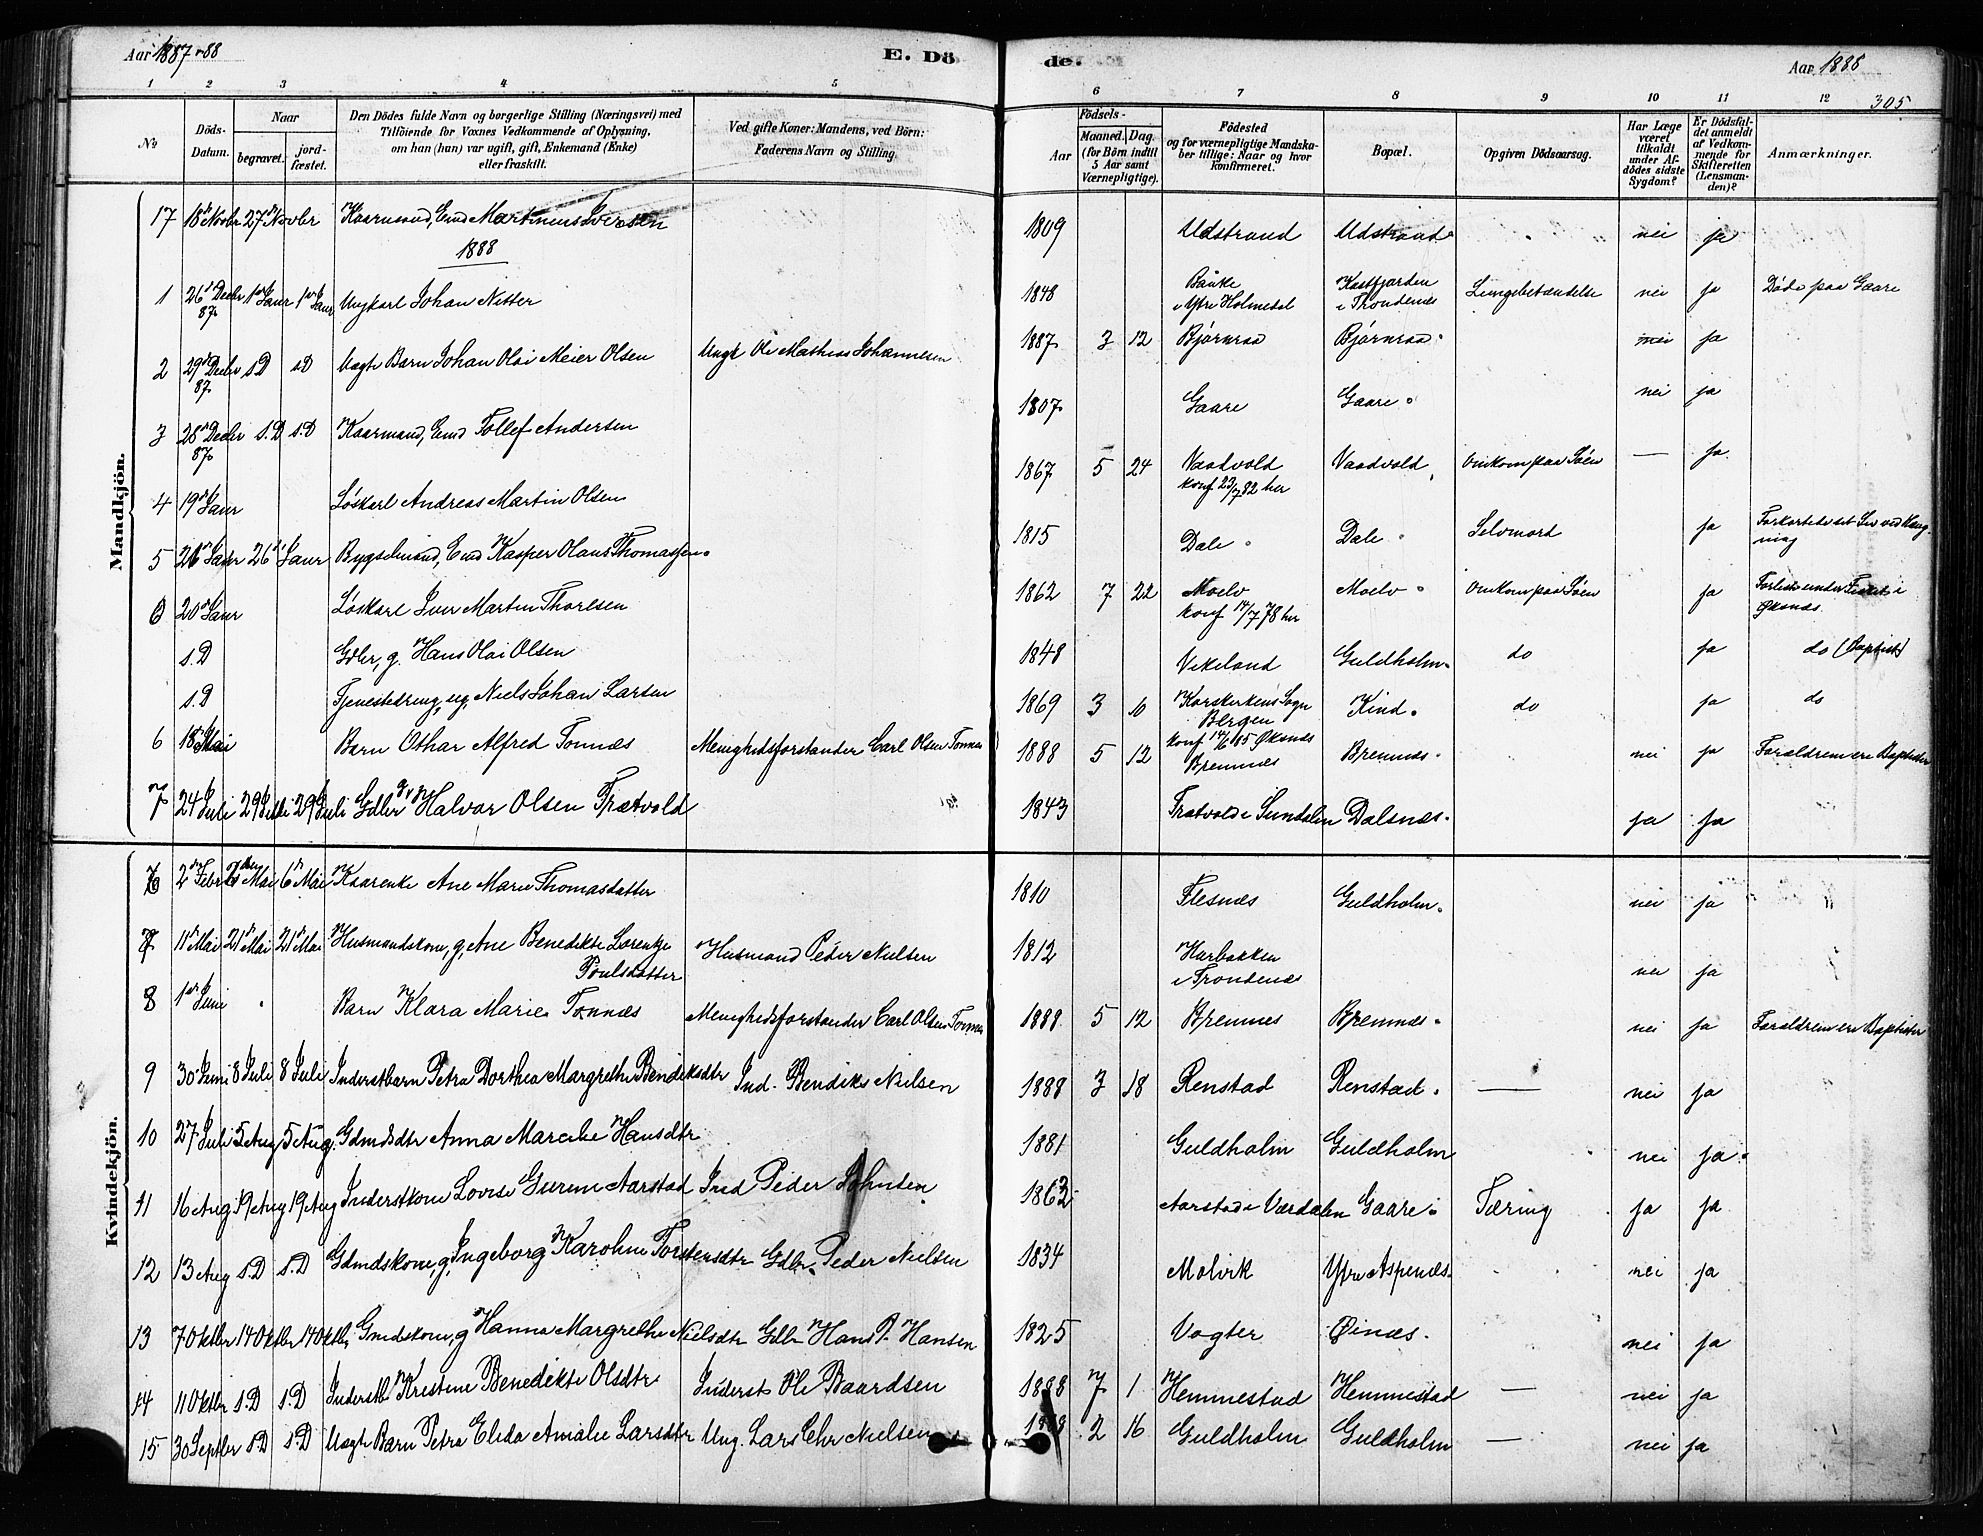 Aar 1887-88 E. Dö de. Aar 1888
305
1 2 3 4 5 6 7 8 9 10 11 12
No
Döds-Datum.
Naar
begravet.
jordfæstet.
Den Dödes fulde Navn og borgerlige Stilling (Næringsvei) med
Tilföiende for Voxnes Vedkommende af Oplysning,
om han (hun) var ugift, gift, Enkemand (Enke)
eller fraskilt.
Ved gifte Koner: Mandens, ved Börn:
Faderens Navn og Stilling.
Födsels-
Aar
Maaned. Dag.
(for Börn indtil
5 Aar samt
Værnepligtige).
Födested
og for værnepligtige Mandskaber tillige: Naar og hvor
konfirmeret.
Bopæl.
Opgiven Dödsaarsag.
Har Læge
været
tilkaldt
under Afdödes sidste
Sygdom?
Er Dödsfaldet anmeldt
af Vedkommende for
Skifteretten
(Lensmanden)?
Anmærkninger.
Mandkjön.
17 18de Novbr 27de Novbr Kaarmand, Emd Martinus Iversen 1809 Udstrand Udstrand nei ja
1888
1 26de Decbr 87 1ste Janr 1ste Janr Ungkarl Johan Nitter 1848 Bauke i Ytre Holmedal Kastfjorden i Trondenæs Lungebetændelse nei ja Døde paa Gaare
2 29de Decbr 87 s.D s.D Uægte Barn Johan Olai Meier Olsen Ungk Ole Mathias Johannesen 1887 3 12 Bjørnraa Bjørnraa nei ja
3 28de Decbr 87 s.D s.D Kaarmand, Emd Tollef Andersen 1807 Gaare Gaare nei ja
4 19de Janr Løskarl Andreas Martin Olsen 1867 5 24 Vaadvold konf 23/7 82 her Vaadvold Omkom paa Søen — ja
5 26de Janr 26de Janr Bygselmand, Emd Kasper Olaus Thomassen 1815 Dale Dale Selvmord ja Forkortede set Liv ved Hængning
6 20de Janr Løskarl Iver Martin Thorlsen 1862 7 22 Moelv konf 14/7 78 her Moelv Omkom paa Søen ja Forliste under Fiskeri i Øksnæs
s.D Gdbr, g. Hans Olai Olsen 1848 Vikeland Guldholm do ja do (Baptist)
s.D Tjenestedreng, ug, Niels Johan Larsen 1869 3 10 Korskirkens Sogn Bergen konf 14/6 85 Øksnæs Kind do ja do
6 18de Mai Barn Othar Alfred Tonnæs Menighedsforstander Carl Olsen Tonnæs 1888 5 12 Bremnæs Bremnæs nei ja Forældrene ere Baptister
7 24 Juli 29 Juli 29 Juli Gdbr g. Halvor Olsen Trætvold 1843 Trætvold i Sundalen Dalsnæs ja ja
Kvindekjön.
6 2de Febr 6te Mai 6te Mai Kaarenke Ane Marie Thomasdatter 1810 Flesnæs Guldholm nei ja
7 11te Mai 21de Mai 21de Mai Husmandskone, g, Ane Benedikte Lorentze Poulsdatter Husmand Peder Nielsen 1812 Harbakken i Trondenæs nei ja
8 1ste Juni Barn Klara Marie Tonnæs Menighedsforstander Carl Olsen Tonnæs 1888 5 12 Bremnes Bremnæs nei ja Forældrene ere Baptister
9 30 Juni 8 Juli 8 Juli Inderstbarn Petra Dorthea Margrethe Bendiksdtr Ind. Bendiks Nielsen 1888 3 18 Renstad Renstad — nei ja
10 27 Juli 5 Aug 5 Aug. Gdmdsdtr Anna Marelie Hansdtr 1881 Guldholm Guldholm nei ja
11 16 Aug 19 Aug 19 Aug Inderstkone Lovise Gurine Aarstad Ind Peder Johnsen 1863 Aarstad i Værdalen Gaare Tæring ja ja
12 13 Aug s.D s.D Gdmdskone, g, Ingeborg Karoline Torstensdtr Gdbr. Peder Nielsen 1834 Molvik Ytre Aspenæs nei ja
13 7 Oktbr 14 Oktbr 14 Oktbr Gmdskone, g Hanna Margrethe Nielsdtr Gdbr Hans P. Hansen 1825 Vogter Øinæs nei ja
14 11 Oktbr s.D s.D Inderstb Kristine Benedikte Olsdtr Inderst Ole Baardsen 1888 7 1 Hemmestad Hemmestad — nei ja
15 30 Septbr s.D s.D Uægte Barn Petra Elida Amalie Larsdtr Ung. Lars Chr Nielsen 1888 2 16 Guldholm Guldholm — nei ja